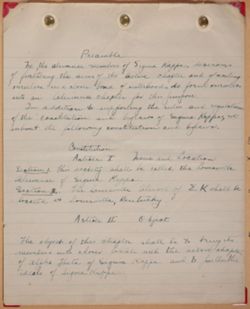 Preamble
We the alumnae members of Sigma Kappa, desirous
of furthering the aims of the active chapter and of making
ourselves into closer bond of sisterhood do form ourselves
into an alumnae chapter for this purpose.
In addition to supporting the rules and regulations
of the constitution and bylaws of Sigma Kappa, we
submit the following constitution and bylaws.
Constitution
Article I Name and Location
Section I. This society shall be called the Louisville
Alumnae of Sigma Kappa.
Section II. The Louisville alumnae of Σ K shall be
located in Louisville, Kentucky
Article II Object
The object of this chapter shall be to bring its
members into closer touch with the active chapter
of Sigma Kappa and to further the
ideals of Sigma Kappa.